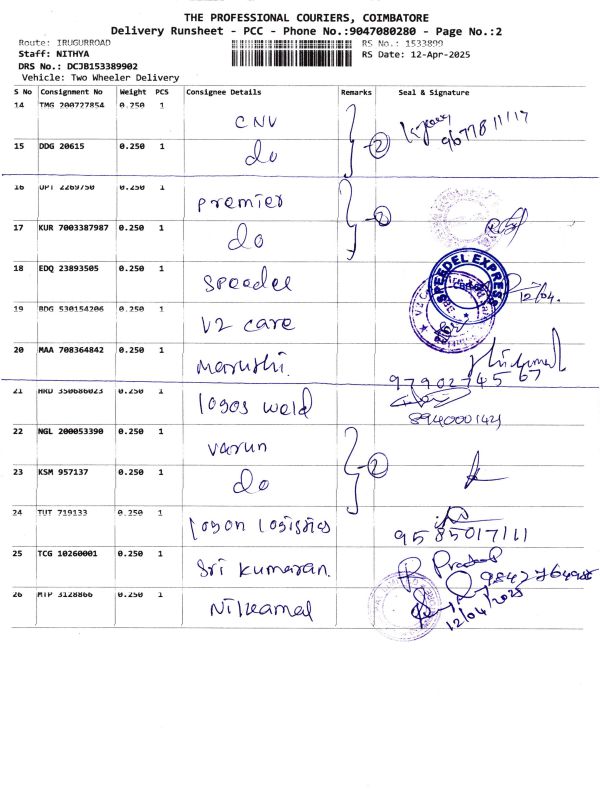 THE PROFESSIONAL COURIERS, COIMBATORE
Delivery Runsheet - PCC - Phone No.:9047080280 - Page No.:2
Route: IRUGURROAD RS No.: 1533899
Staff: NITHYA RS Date: 12-Apr-2025
DRS No.: DCJB153389902
Vehicle: Two Wheeler Delivery
S No Consignment No Weight PCS Consignee Details Remarks Seal & Signature
14 TMG 200727854 0.250 1 CNV 9677811117
15 DDG 20615 0.250 1 do 2
16 OPT 2269750 0.250 1 premier 2
17 KUR 7003387987 0.250 1 do
18 EDQ 23893505 0.250 1 speedel SPEEDEL EXPRESS 12/04.
19 BDG 530154206 0.250 1 V2 care
20 MAA 708364842 0.250 1 maruthi. 9790274567
21 HRD 350686023 0.250 1 logos weld 8940001421
22 NGL 200053390 0.250 1 varun 2
23 KSM 957137 0.250 1 do
24 TUT 719133 0.250 1 logon logistics 9585017111
25 TCG 10260001 0.250 1 Sri kumaran.
26 MTP 3128866 0.250 1 Nilkamal 12/04/2025